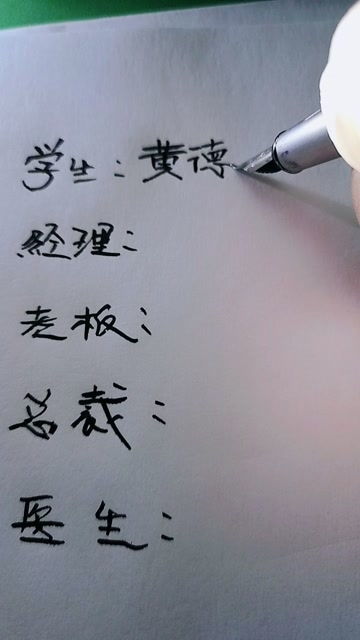 学生：黄德
经理：
老板：
总裁：
医生：